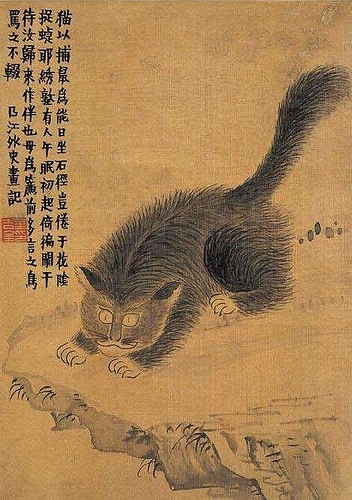 猫以捕鼠爲能日坐石徑豈倦于花陰
捉蝶耶綉墪有人午眠初起倚徧闌干
待汝歸來作伴也毋爲簷前多言之鳥
罵之不輟 曲江外史畫記